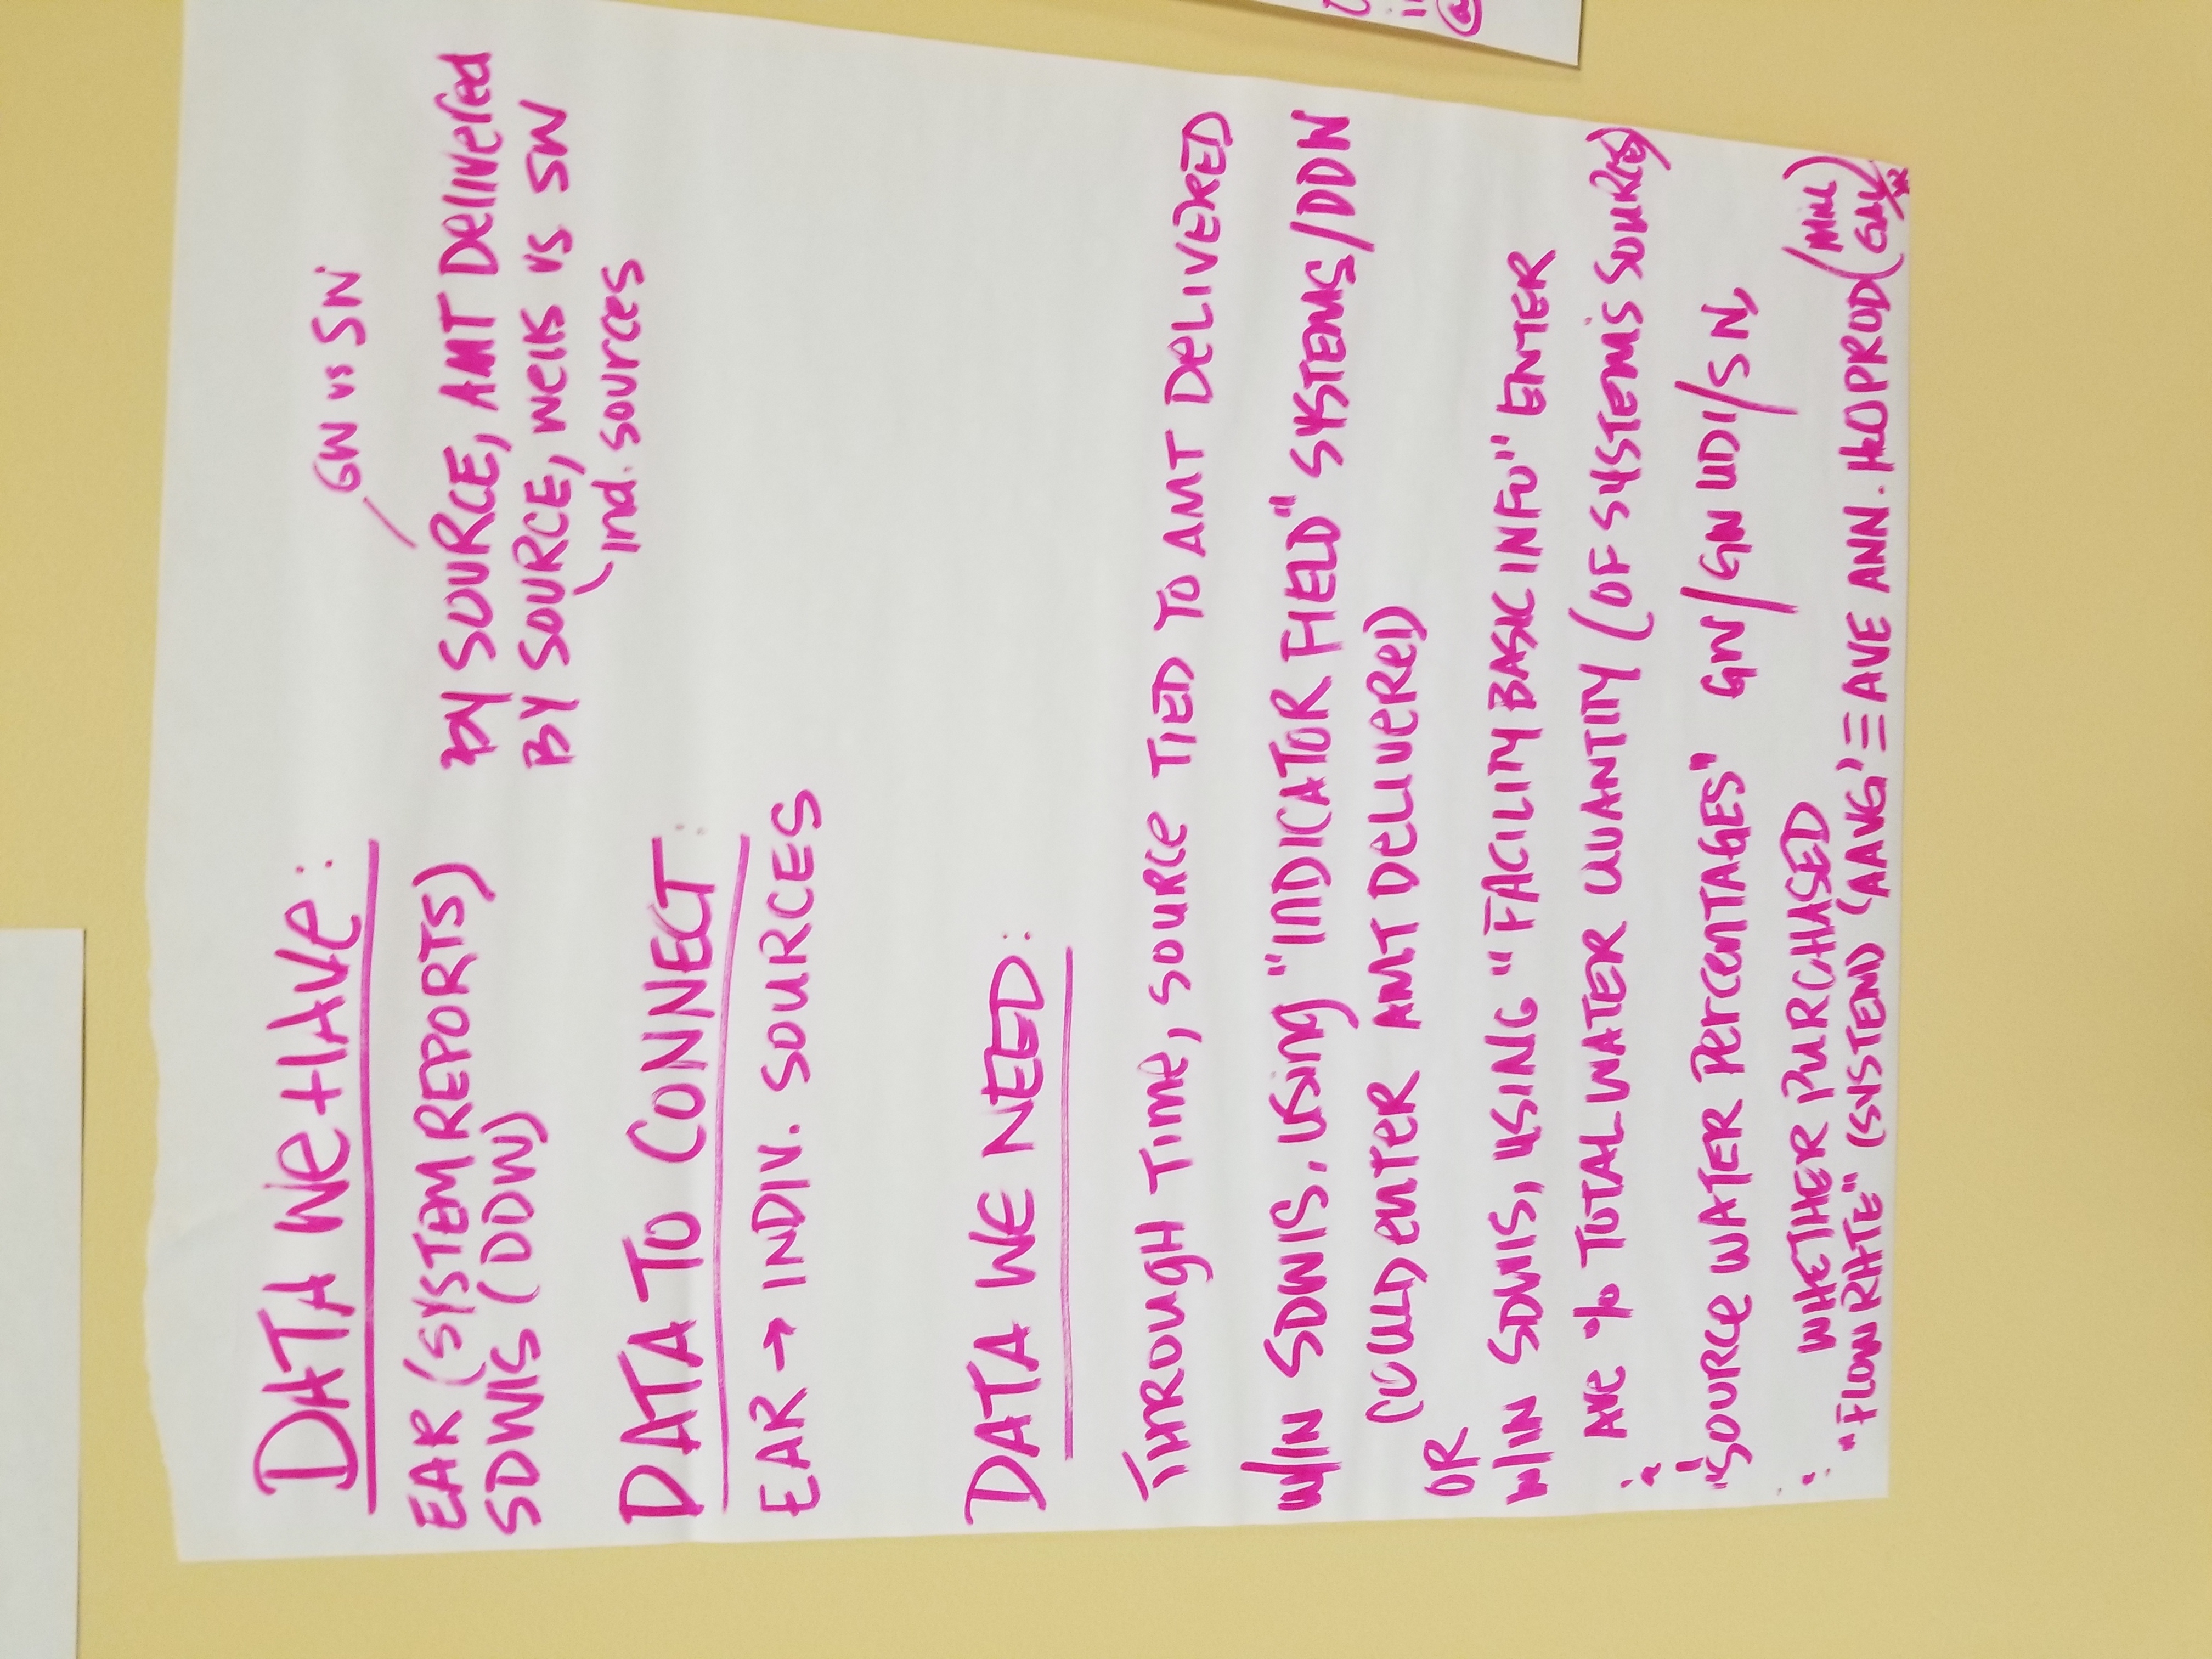 DATA WE HAVE:
GW vs SW
EAR (SYSTEM REPORTS) BY SOURCE, AMT Delivered
SDWIS (DDW) BY SOURCE, wells vs SW
ind. sources
DATA TO CONNECT:
EAR → INDIV. SOURCES
DATA WE NEED:
THROUGH TIME, SOURCE TIED TO AMT DELIVERED
W/IN SDWIS, USING "INDICATOR FIELD" SYSTEMS/DDW
(COULD ENTER AMT DELIVERED)
OR
W/IN SDWIS, USING "FACILITY BASIC INFO" ENTER
AVE % TOTAL WATER QUANTITY (OF SYSTEM'S SOURCES)
"SOURCE WATER PERCENTAGES" GW/GW UDI/SW,
WHETHER PURCHASED
"FLOW RATE" (SYSTEM) 'AAVG' ≡ AVE ANN. H2O PROD (MILL GAL/YR)